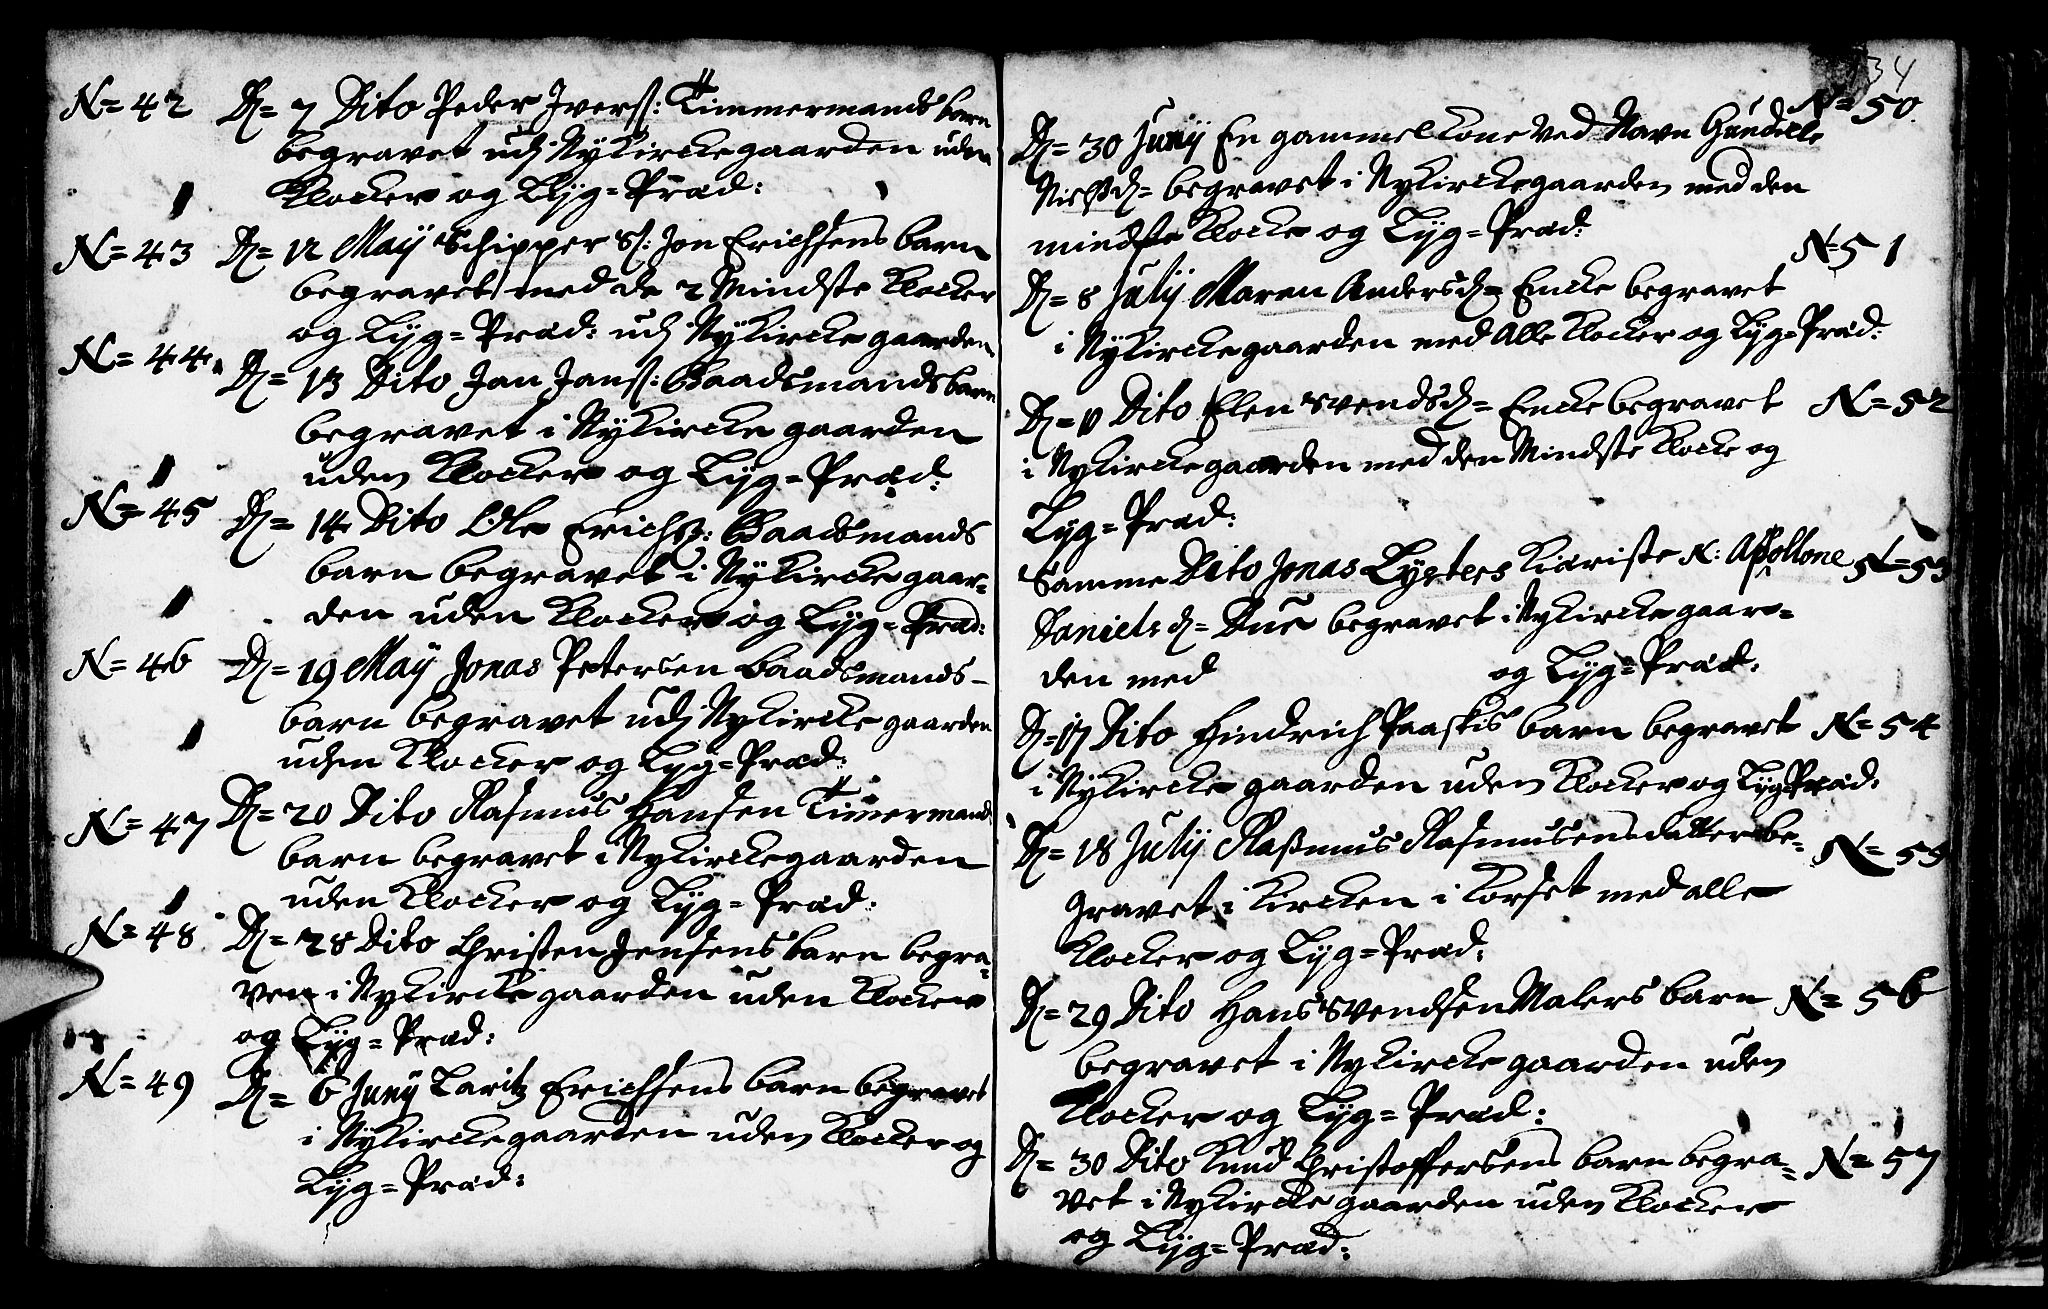 N= 42 D= 7 Dito Peder Iverss: Timmermands barn
begravet udj Nykirckegaarden uden
Klocker og Lyg=Præd:
N= 43 D= 12 Maij Schipper Sl: Jon Erichsens barn
begravet med de 2 Mindste Klocker
og Lyg=Præd: udj Nykirckegaarden
N= 44. D= 13 Dito Jan Janss: Baadsmands barn
begravet i Nykircke gaarden
uden Klocker og Lyg=Præd:
N= 45 D= 14 Dito Ole Erichss: Baadsmands
barn begravet i Nykirckegaar=
den uden Klocker og Lyg=Præd:
N= 46 D= 19 Maij Jonas Petersen Baadsmands
barn begravet udj Nykircke gaarden
uden Klocker og Lyg=Præd:
N= 47 D= 20 Dito Rasmus Hansen Timermands
barn begravet i Nykirckegaarden
uden Klocker og Lyg=Præd:
N= 48 D= 28 Dito Christen Jensens barn begra=
ven i Nykircke gaarden uden Klocker
og Lyg=Præd:
N= 49 D= 6 Junij Laritz Erichsens barn begravet
i Nykirckegaarden uden Klocker og
Lyg=Præd:
34
N= 50.
D= 30 Junij En gammel Kone ved Navn Gundelle
Nielsd= begravet i Nykirckegaarden med den
mindste Klocke og Lyg=Præd:
N= 51
D= 8 Julij Maren Andersd= Encke begravet
i Nykircke gaarden med alle Klocker og Lyg=Præd:
D= 11 Dito Elen Svendsd= Encke begravet N= 52
i Nykirckegaarden med den Mindste Klocke og
Lyg=Præd:
Samme Dito Jonas Lysters Kiæriste N: Apollone N= 53
Daniels d= Due begravet i Nykircke gaar=
den med og Lyg=Præd:
D= 17 Dito Hindrich Paaskis barn begravet N= 54
i Nykircke gaarden uden Klocker og Lyg Præd:
D= 18 Julij Rasmus Rasmusens datter be= N= 55
gravet i Kircken i Korset med alle
Klocker og Lyg=Præd:
D= 29 Dito Hans Svendsen Malers barn N= 56
begravet i Nykircke gaarden uden
Klocker og Lyg=Præd:
D= 30 Dito Knud Christoffersens barn begra= N= 57
vet i Nykircke gaarden uden Klocker
og Lyg=Præd: